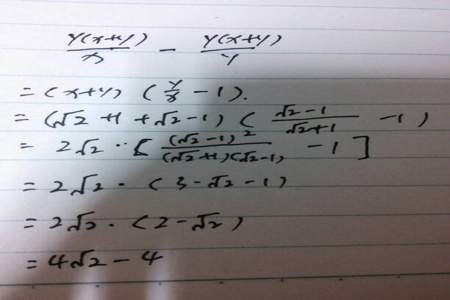 y(x+y)/x - y(x+y)/y
= (x+y) (y/x - 1).
= (√2 + 1 + √2 - 1) ( √2 - 1 / √2 + 1 - 1 )
= 2√2 · [ (√2 - 1)² / (√2 + 1)(√2 - 1) - 1 ]
= 2√2 · (3 - √2 - 1)
= 2√2 · (2 - √2)
= 4√2 - 4